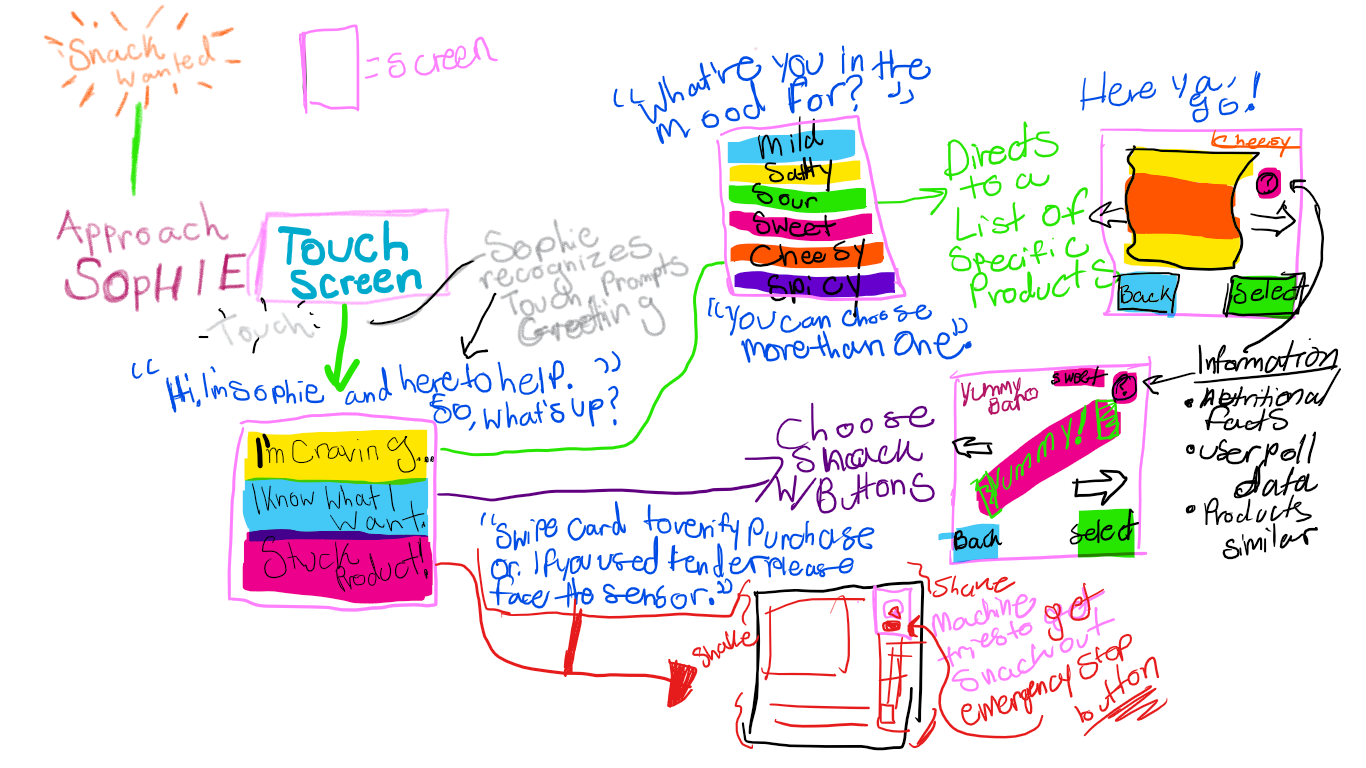 Snack
Wanted
= Screen
Approach
SOPHIE
Touch
Screen
Touch
Sophie
recognizes
Touch, Prompts
Greeting
"Hi, I'm Sophie and here to help."
So, what's up?
I'm Craving...
I Know What I
Want.
Stuck
Product!
"What're you in the
mood for?"
Mild
Salty
Sour
Sweet
Cheesy
Spicy
"You can choose
more than one."
Directs
to a
List of
Specific
Products
Here ya
go!
Cheesy
?
Back
Select
Choose
Snack
W/
Buttons
Yummy
Sweet
?
Yummy!
Back
Select
Information
• Nutritional
facts
• User poll
data
• Products
similar
"Swipe Card to verify Purchase
or. If you used tender please
face to sensor."
Shake
Shake
Machine
tries to get
Snack out
emergency Stop
button